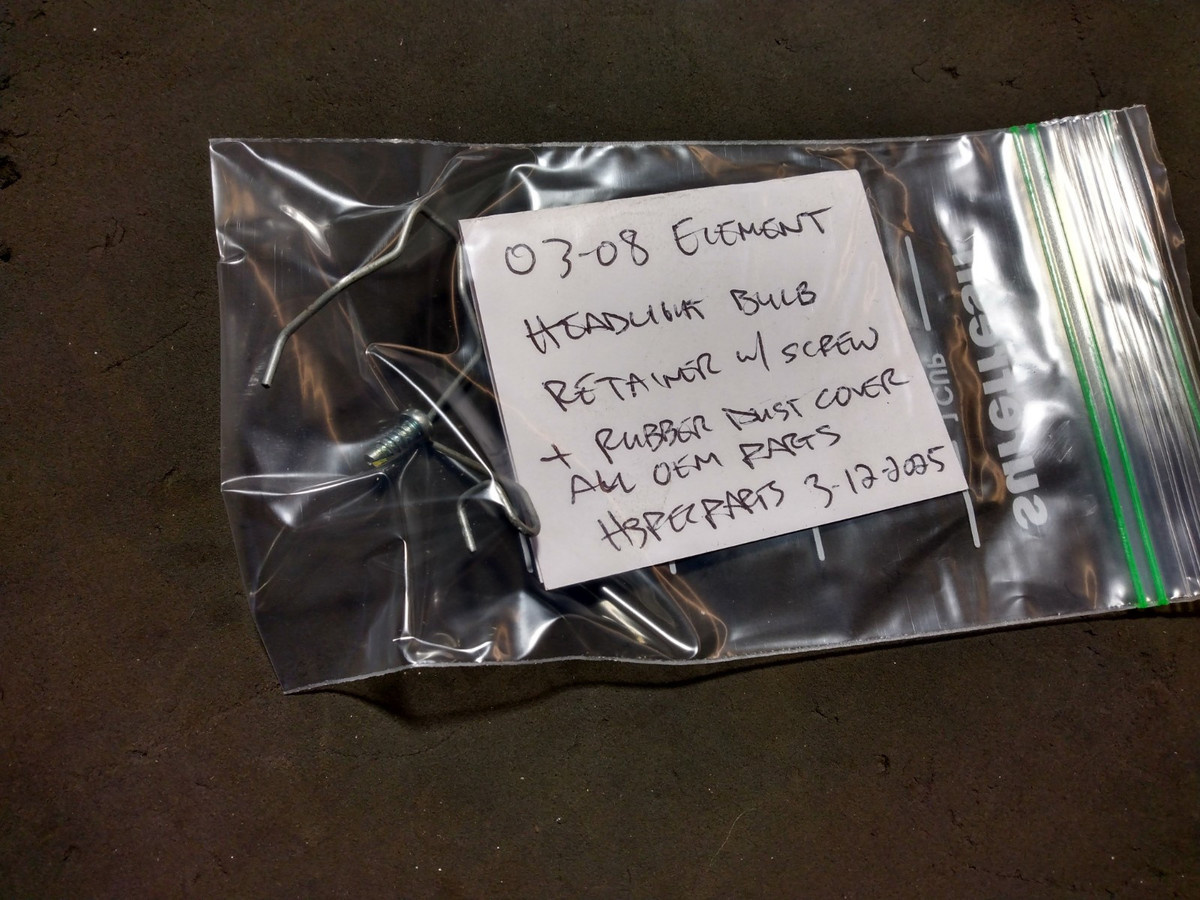 03-08 ELEMENT
HEADLIGHT BULB
RETAINER W/ SCREW
+ RUBBER DUST COVER
ALL OEM PARTS
HSPECPARTS 3-12-2025
1 CUP